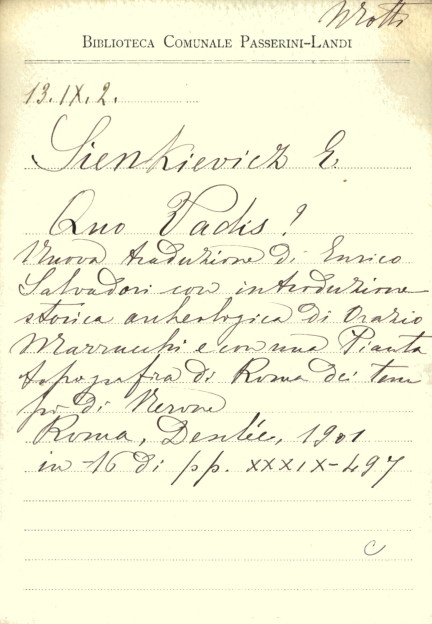 Motti
BIBLIOTECA COMUNALE PASSERINI-LANDI
13.IX.2.
Sienkievicz E.
Quo Vadis?
Nuova traduzione di Enrico
Salvadori con introduzione
storica archeologica di Orazio
Marrucchi e con una Pianta
topografica di Roma dei tem
pi di Nerone
Roma, Desclée, 1901
in-16 di pp. XXXIX-497
C